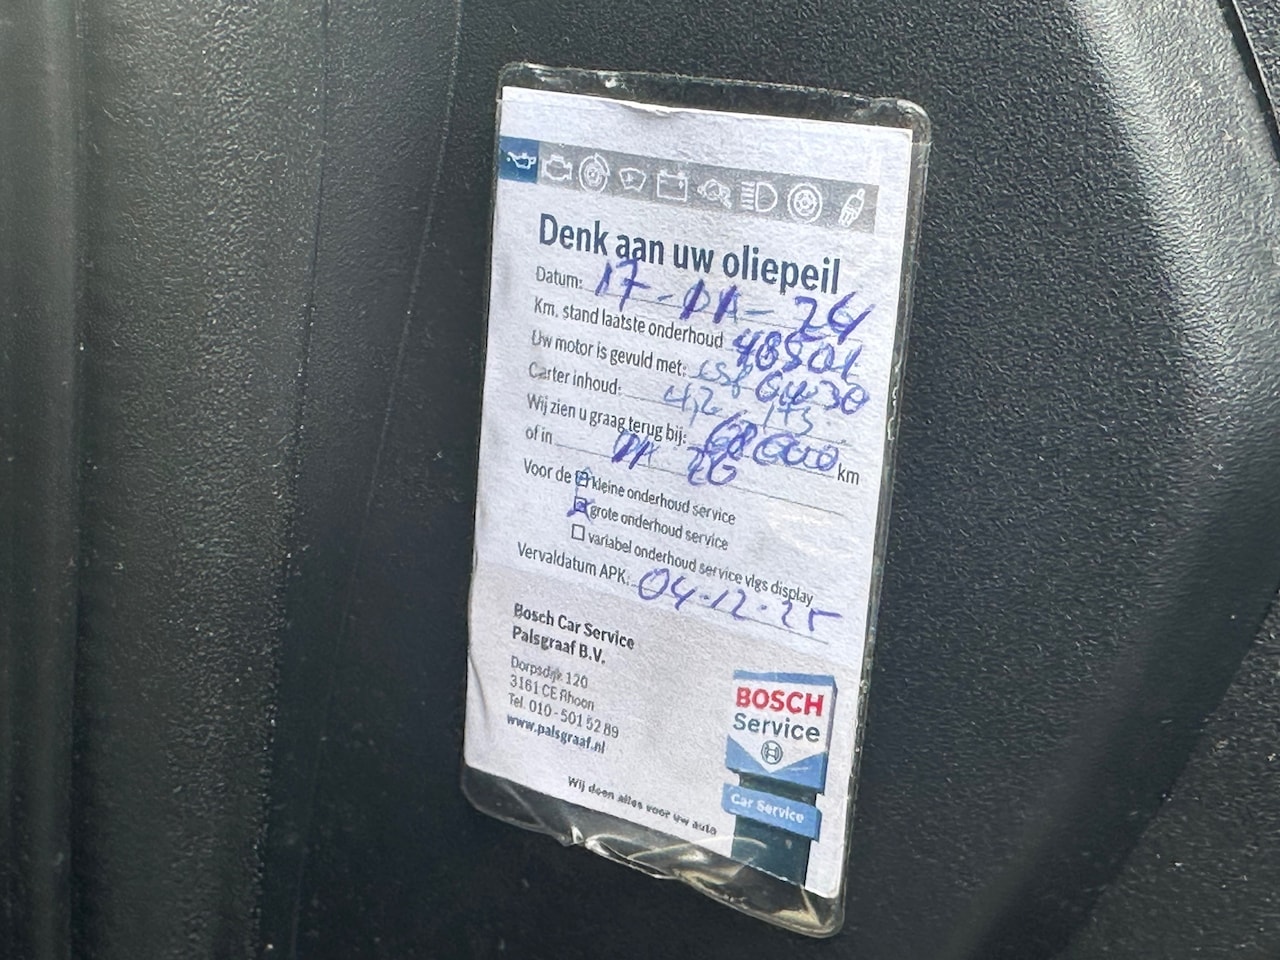 Denk aan uw oliepeil
Datum: 17-11-24
Km. stand laatste onderhoud 48501
Uw motor is gevuld met: 0W30
Carter inhoud: 4,2 lts.
Wij zien u graag terug bij: 68000 km
of in 11 26
Voor de kleine onderhoud service
grote onderhoud service
variabel onderhoud service vlgs display
Vervaldatum APK: 04-12-25
Bosch Car Service
Palsgraaf B.V.
Dorpsdijk 120
3161 CE Rhoon
Tel. 010 - 501 52 89
www.palsgraaf.nl
Wij doen alles voor uw auto
BOSCH
Service
Car Service